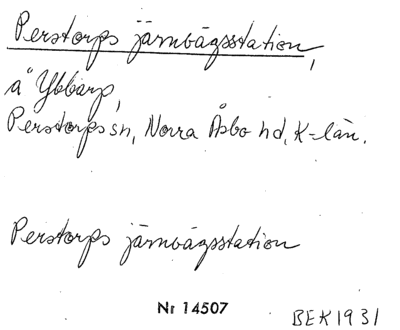 Perstorps järnvägsstation,
å Ybbarp,
Perstorps sn, Norra Åsbo hd, K-län.
Perstorps järnvägsstation
Nr 14507
BEK1931